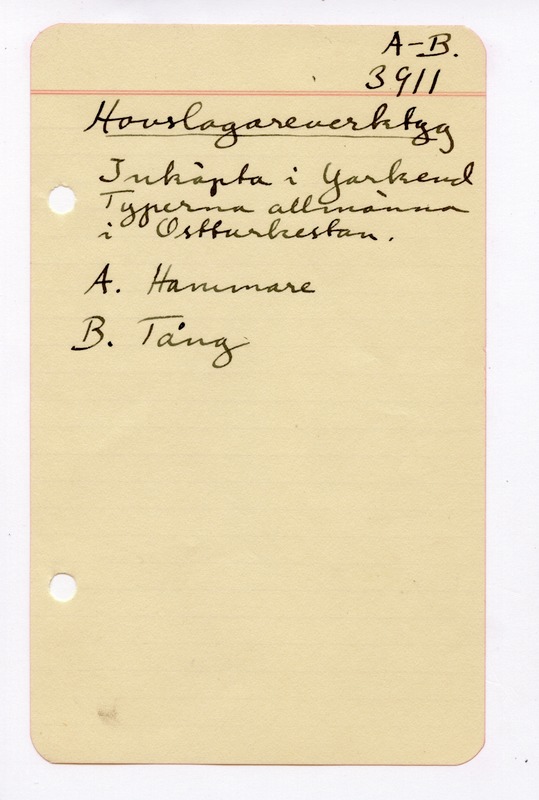 A-B.
3911
Hovslagareverktyg
Inköpta i Yarkend
Typerna allmänna
i Ostturkestan.
A. Hammare
B. Tång